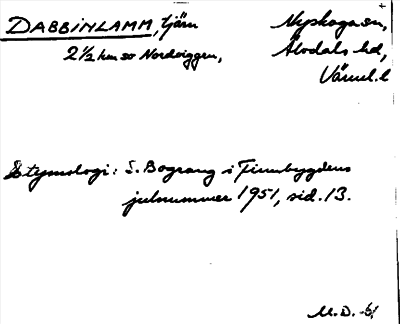 DABBINLAMM, tjärn
Nyskoga sn,
2½ km so Nordviggen,
Älvdals hd,
Värml. l
Etymologi: S. Bograng i Finnbygdens
julnummer 1951, sid. 13.
M.D. -61